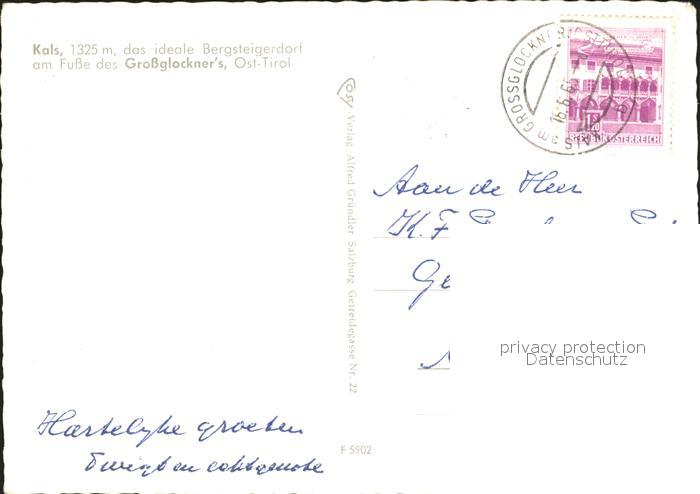 Kals, 1325 m, das ideale Bergsteigerdorf
am Fuße des Großglockner's, Ost-Tirol
Cosy Verlag Alfred Gründler Salzburg Getreidegasse Nr. 22
KALS am GROSSGLOCKNER
16.6.6
REPUBLIK ÖSTERREICH
Aan de Heer
K. F.
Ge
privacy protection
Datenschutz
Hartelyke groeten
en echtgenote
F 5902